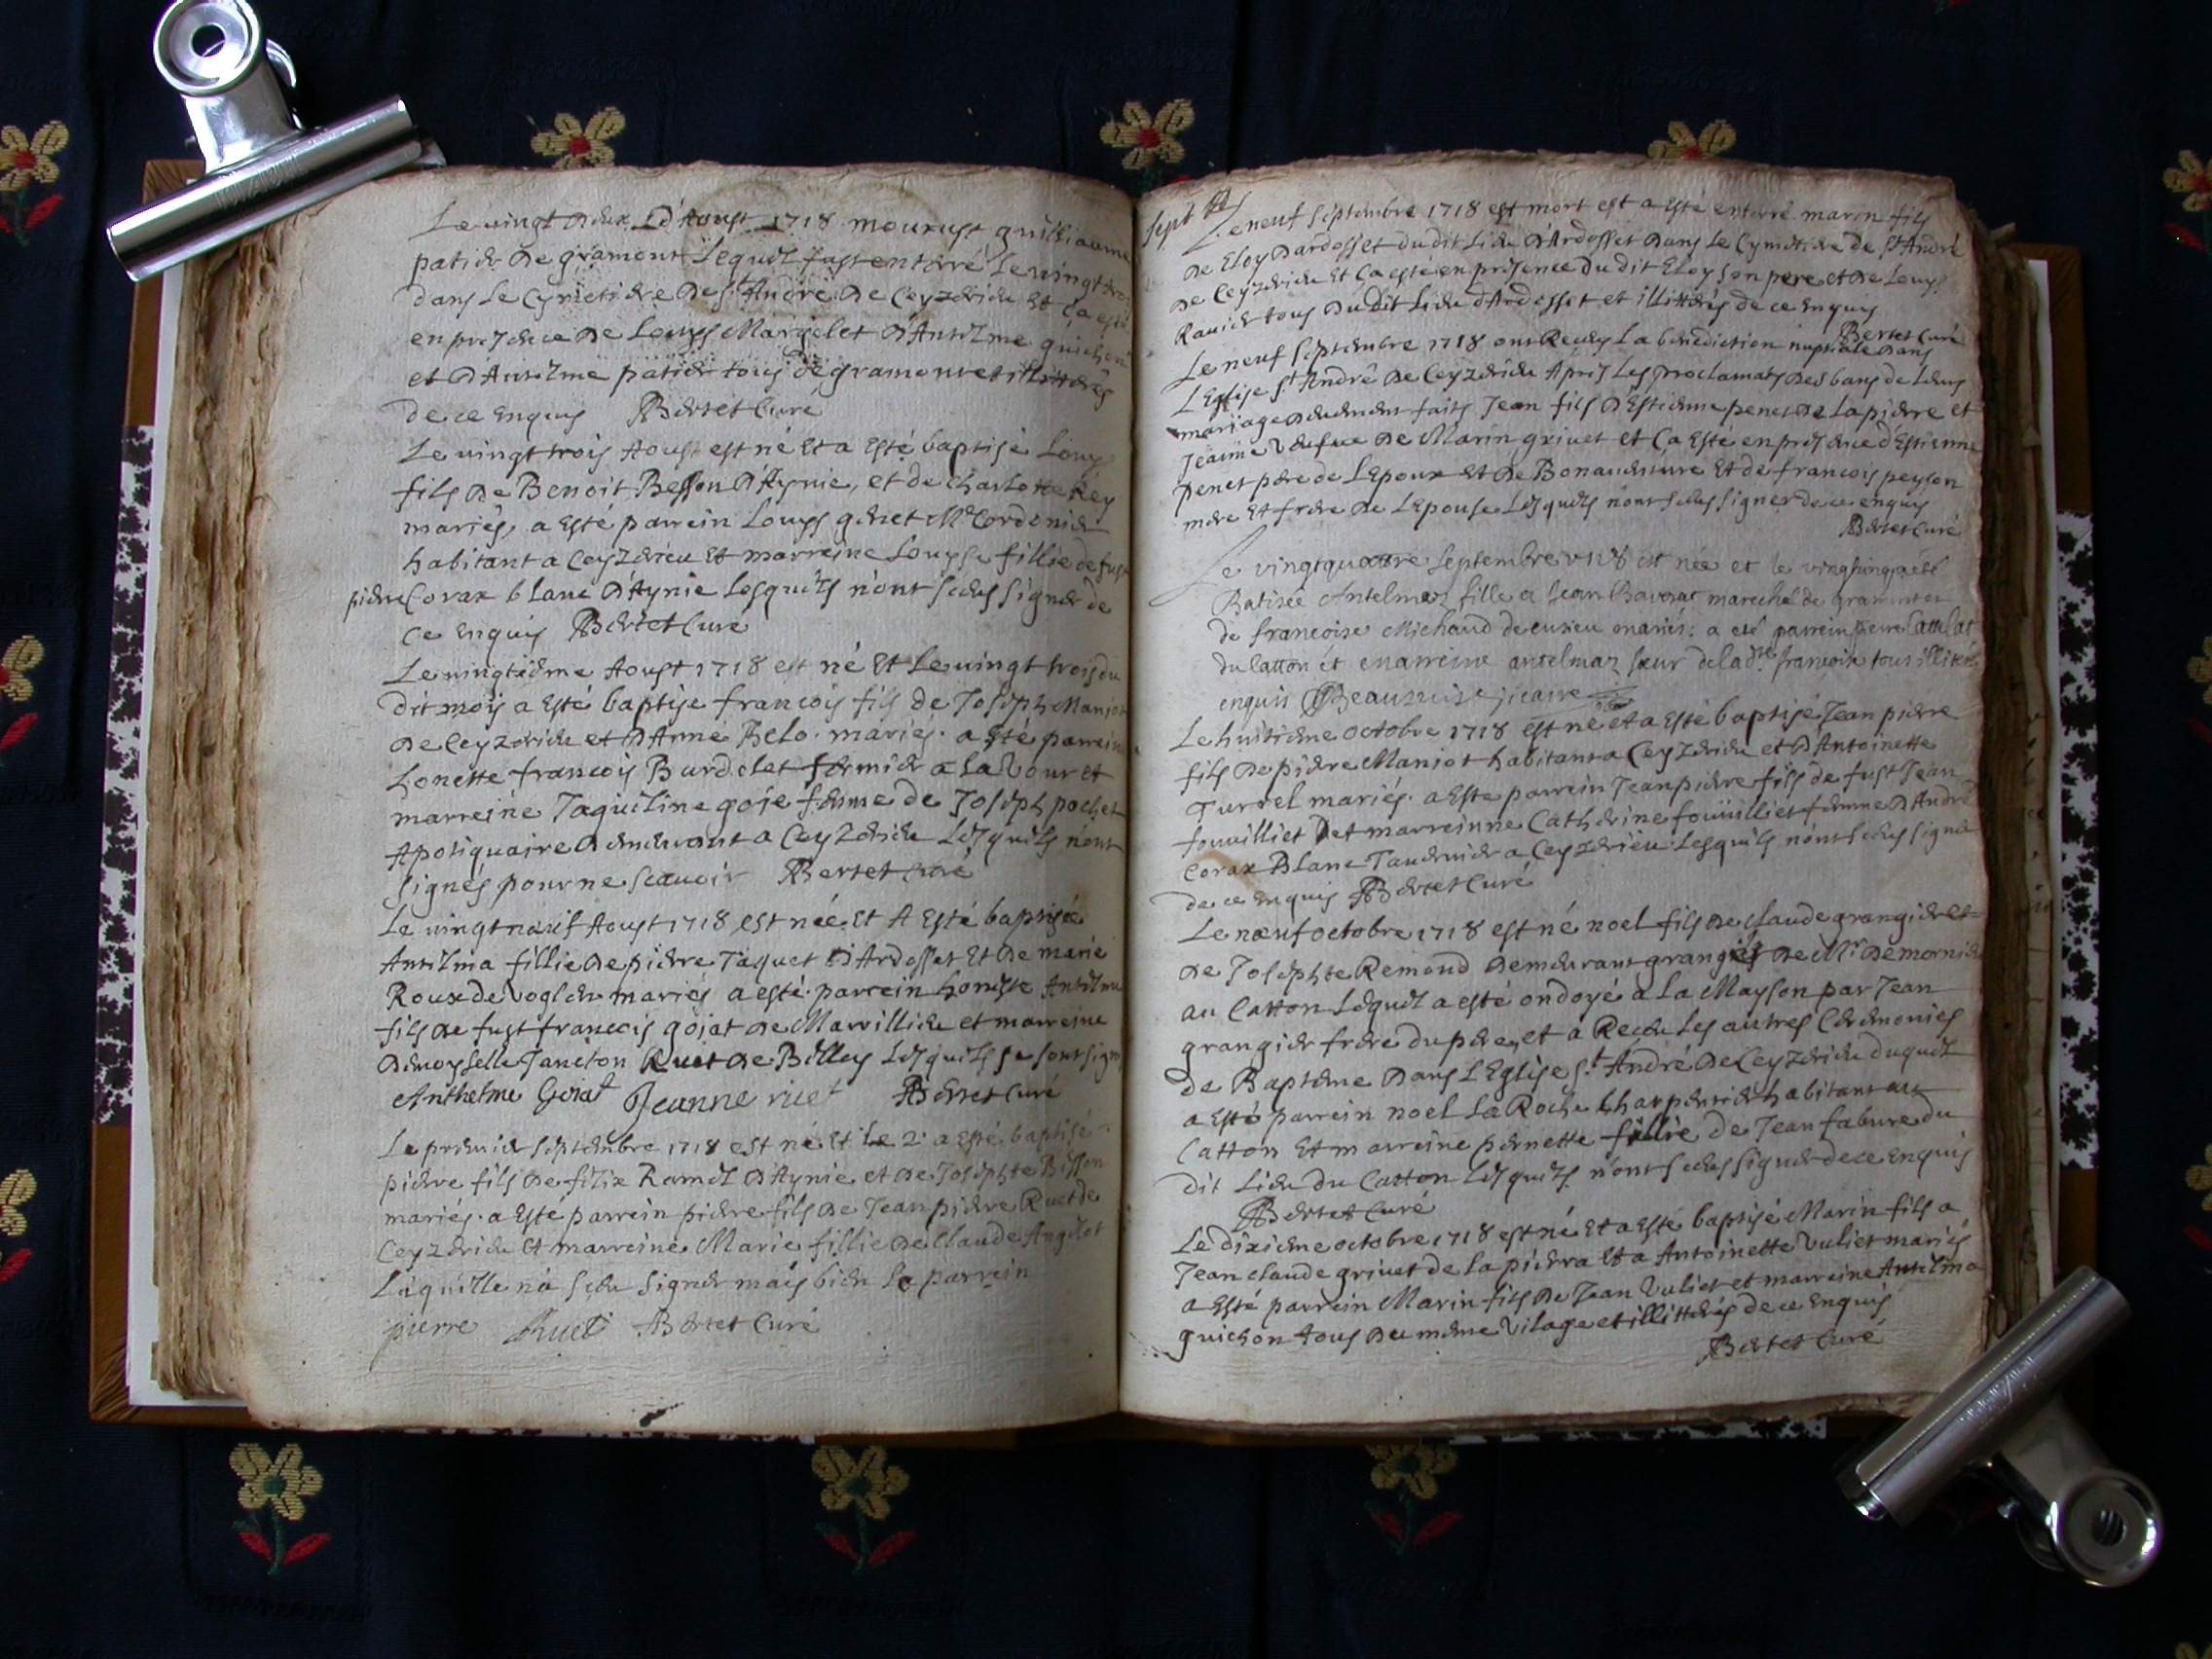 Le vingt deux d'Aoust 1718 mourust guilliaume
patier de gramont lequel fust enterré le vingt trois
dans le Cymetiere de St André de Ceyzerieu et ça esté
en presence de Louys Marjolet d'Antelme guichon
et d'Antelme patier tous de gramont et illitterés
de ce enquis Bertet Curé
Le vingt trois Aoust est né et a esté baptisé Louys
fils de Benoit Besson d'Aynie, et de charlotte Rey
mariés, a esté parrein Louys genet Me Cordonier
habitant a Ceyzerieu et marreine Louyse fillie de fust
pierre Corax blanc d'Aynie lesquels n'ont sceus signer de
ce enquis Bertet Curé
Le vingtième Aoust 1718 est né et le vingt trois du
dit mois a esté baptisé francois fils de Joseph Manjot
de Ceyzerieu et d'Anne Belo mariés. a esté parrein
honette francois Burdelet fermier a la Vour et
marreine Jaqueline goje femme de Joseph pochet
Apotiquaire demeurant a Ceyzerieu lesquels n'ont
signés pour ne scavoir Bertet Curé
Le vingt neuf Aoust 1718 est née et a esté baptisée
Antelma fillie de pierre Jaquet d'Ardosset et de marie
Roux de Voglen mariés a esté parrein honeste Antelme
fils de fust francois gojat de Marvillieu et marreine
demoyselle Jancton Ruet de Billey lesquels se sont signés
Anthelme Goiat Jeanne ruet Bertet Curé
Le premier septembre 1718 est né et le 2 a esté baptisé
pierre fils de felix Ramel d'Aynie et de Josephte Besson
mariés. a esté parrein pierre fils de Jean pierre Ruet de
Ceyzerieu et marreine Marie fillie de Claude Angelot
laquelle n'a sceu signer mais bien le parrein
pierre Ruet Bertet Curé
sept
Le neuf septembre 1718 est mort est a esté enterré marin fils
de Eloy dardosset du dit lieu d'Ardosset dans le Cymetiere de St André
de Ceyzerieu et ça esté en présence du dit Eloy son pere et de Louys
Ravier tous du dit lieu d'Ardosset et illitterés de ce enquis
Bertet Curé
Le neuf septembre 1718 ont Receus la benediction nuptiale dans
l'Eglise St André de Ceyzerieu Après les proclamats des bans de leurs
mariage deuement faits Jean fils d'Estienne penet de la pierre et
Jeanne Vefue de Marin grivet et ça esté en presence d'Estienne
penet père de l'Epoux et de Bonaventure et de francois peyson
mere et frere de l'Epouse lesquels n'ont sceus signer de ce enquis
Bertet Curé
Le vingtquattre septembre 1718 est née et le vingtcinq a été
Batisée Antelmaz fille a Jean Bavoux marechal de gramont et
de francoise Michaud de cuzieu mariés: a eté parrein pierre
du Catton et marreine antelmaz sœur de la dte francoise tous illiterés
enquis Beaumise vicaire
Le huitieme octobre 1718 est né et a esté baptisé Jean pierre
fils de pierre Manjot habitant a Ceyzerieu et d'Antoinette
Turrel mariés. a esté parrein Jean pierre fils de fust Jean
fouilliet et marreinne Catherine fouilliet femme d'André
Corax Blanc Tauernier a Ceyzerieu lesquels n'ont sceus signer
de ce enquis Bertet Curé
Le neuf octobre 1718 est né noel fils de claude grangier et
de Josephte Remond demeurant grangés de Mr de mornieu
au Catton lequel a esté ondoyé a la Mayson par Jean
grangier frere du pere, et a Receu les autres Ceremonies
de Baptême dans l'Eglise St André de Ceyzerieu duquel
a esté parrein noel La Roche charpentier habitant au
Catton et marreine pernette fillie de Jean fabure du
dit lieu du Catton lesquels n'ont sceus signer de ce enquis
Bertet Curé
Le dixieme octobre 1718 est né et a esté baptisé Marin fils a
Jean claude grivet de la pierra et a Antoinette Vuliet mariés
a esté parrein Marin fils de Jean Vuliet et marreine Antelma
guichon tous du même vilage et illitterés de ce enquis
Bertet Curé